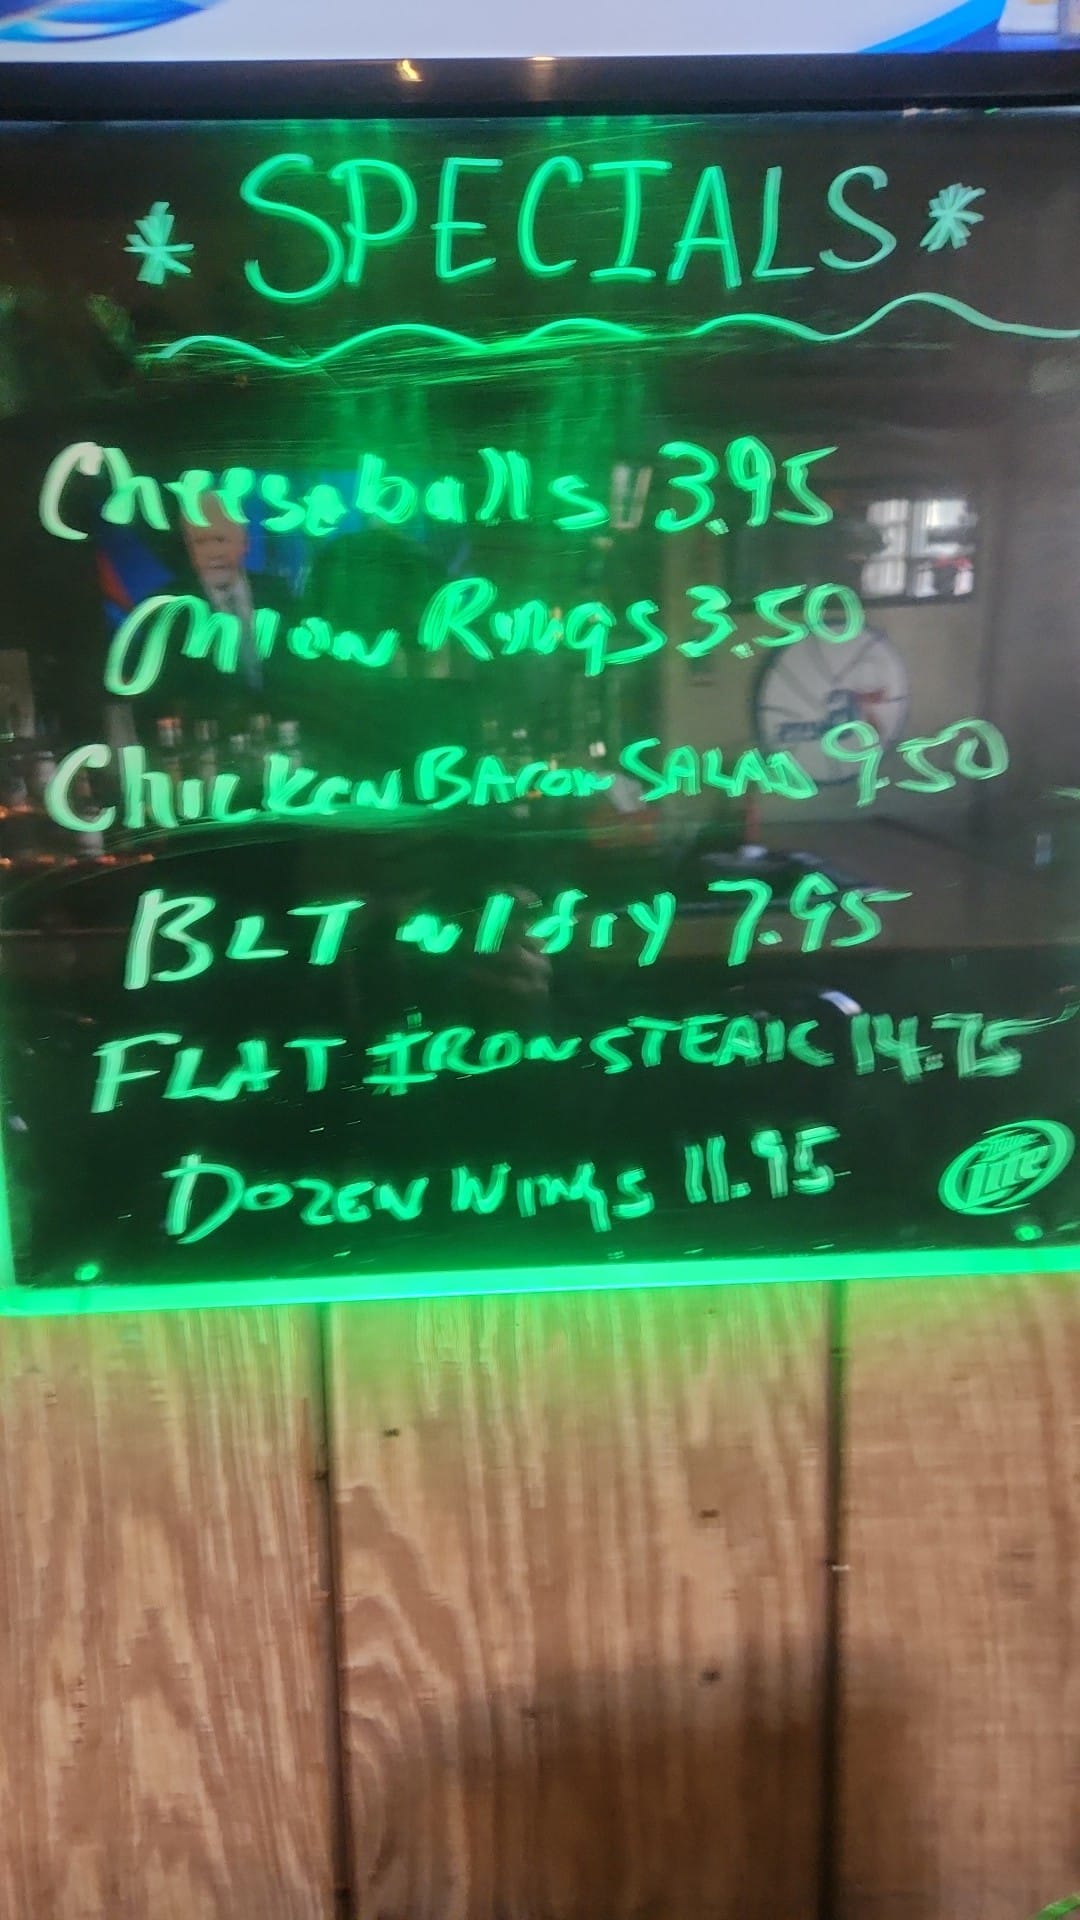 * SPECIALS *
Cheeseballs 3.95
Onion Rings 3.50
CHICKEN BACON SALAD 9.50
BLT w/fry 7.95
FLAT IRON STEAK 14.75
DOZEN WINGS 11.95
Lite